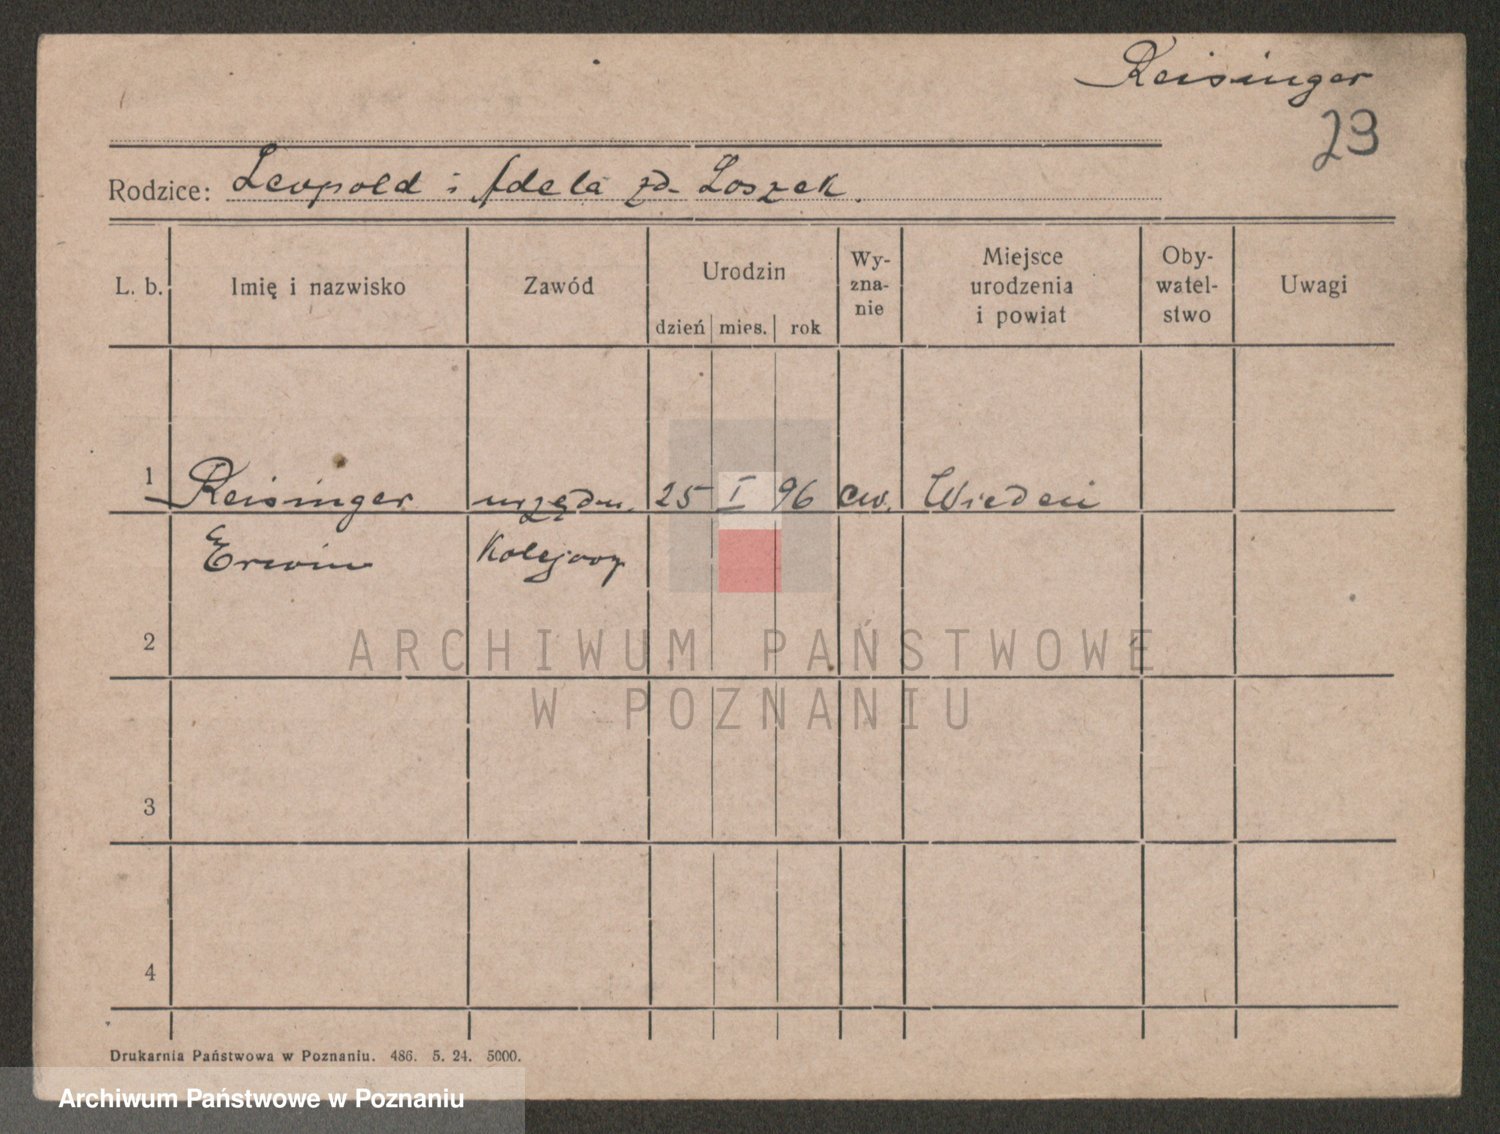 Reisinger
23
Rodzice: Leopold i Adela zd. Loszek.
L. b. Imię i nazwisko Zawód Urodzin dzień mies. rok Wy-zna-nie Miejsce urodzenia i powiat Oby-watel-stwo Uwagi
1 Reisinger urzędn. 25 I 96 ew. Wiedeń
Erwin Kolejowy
2
ARCHIWUM PAŃSTWOWE
W POZNANIU
3
4
Drukarnia Państwowa w Poznaniu. 486. 5. 24. 5000.
Archiwum Państwowe w Poznaniu